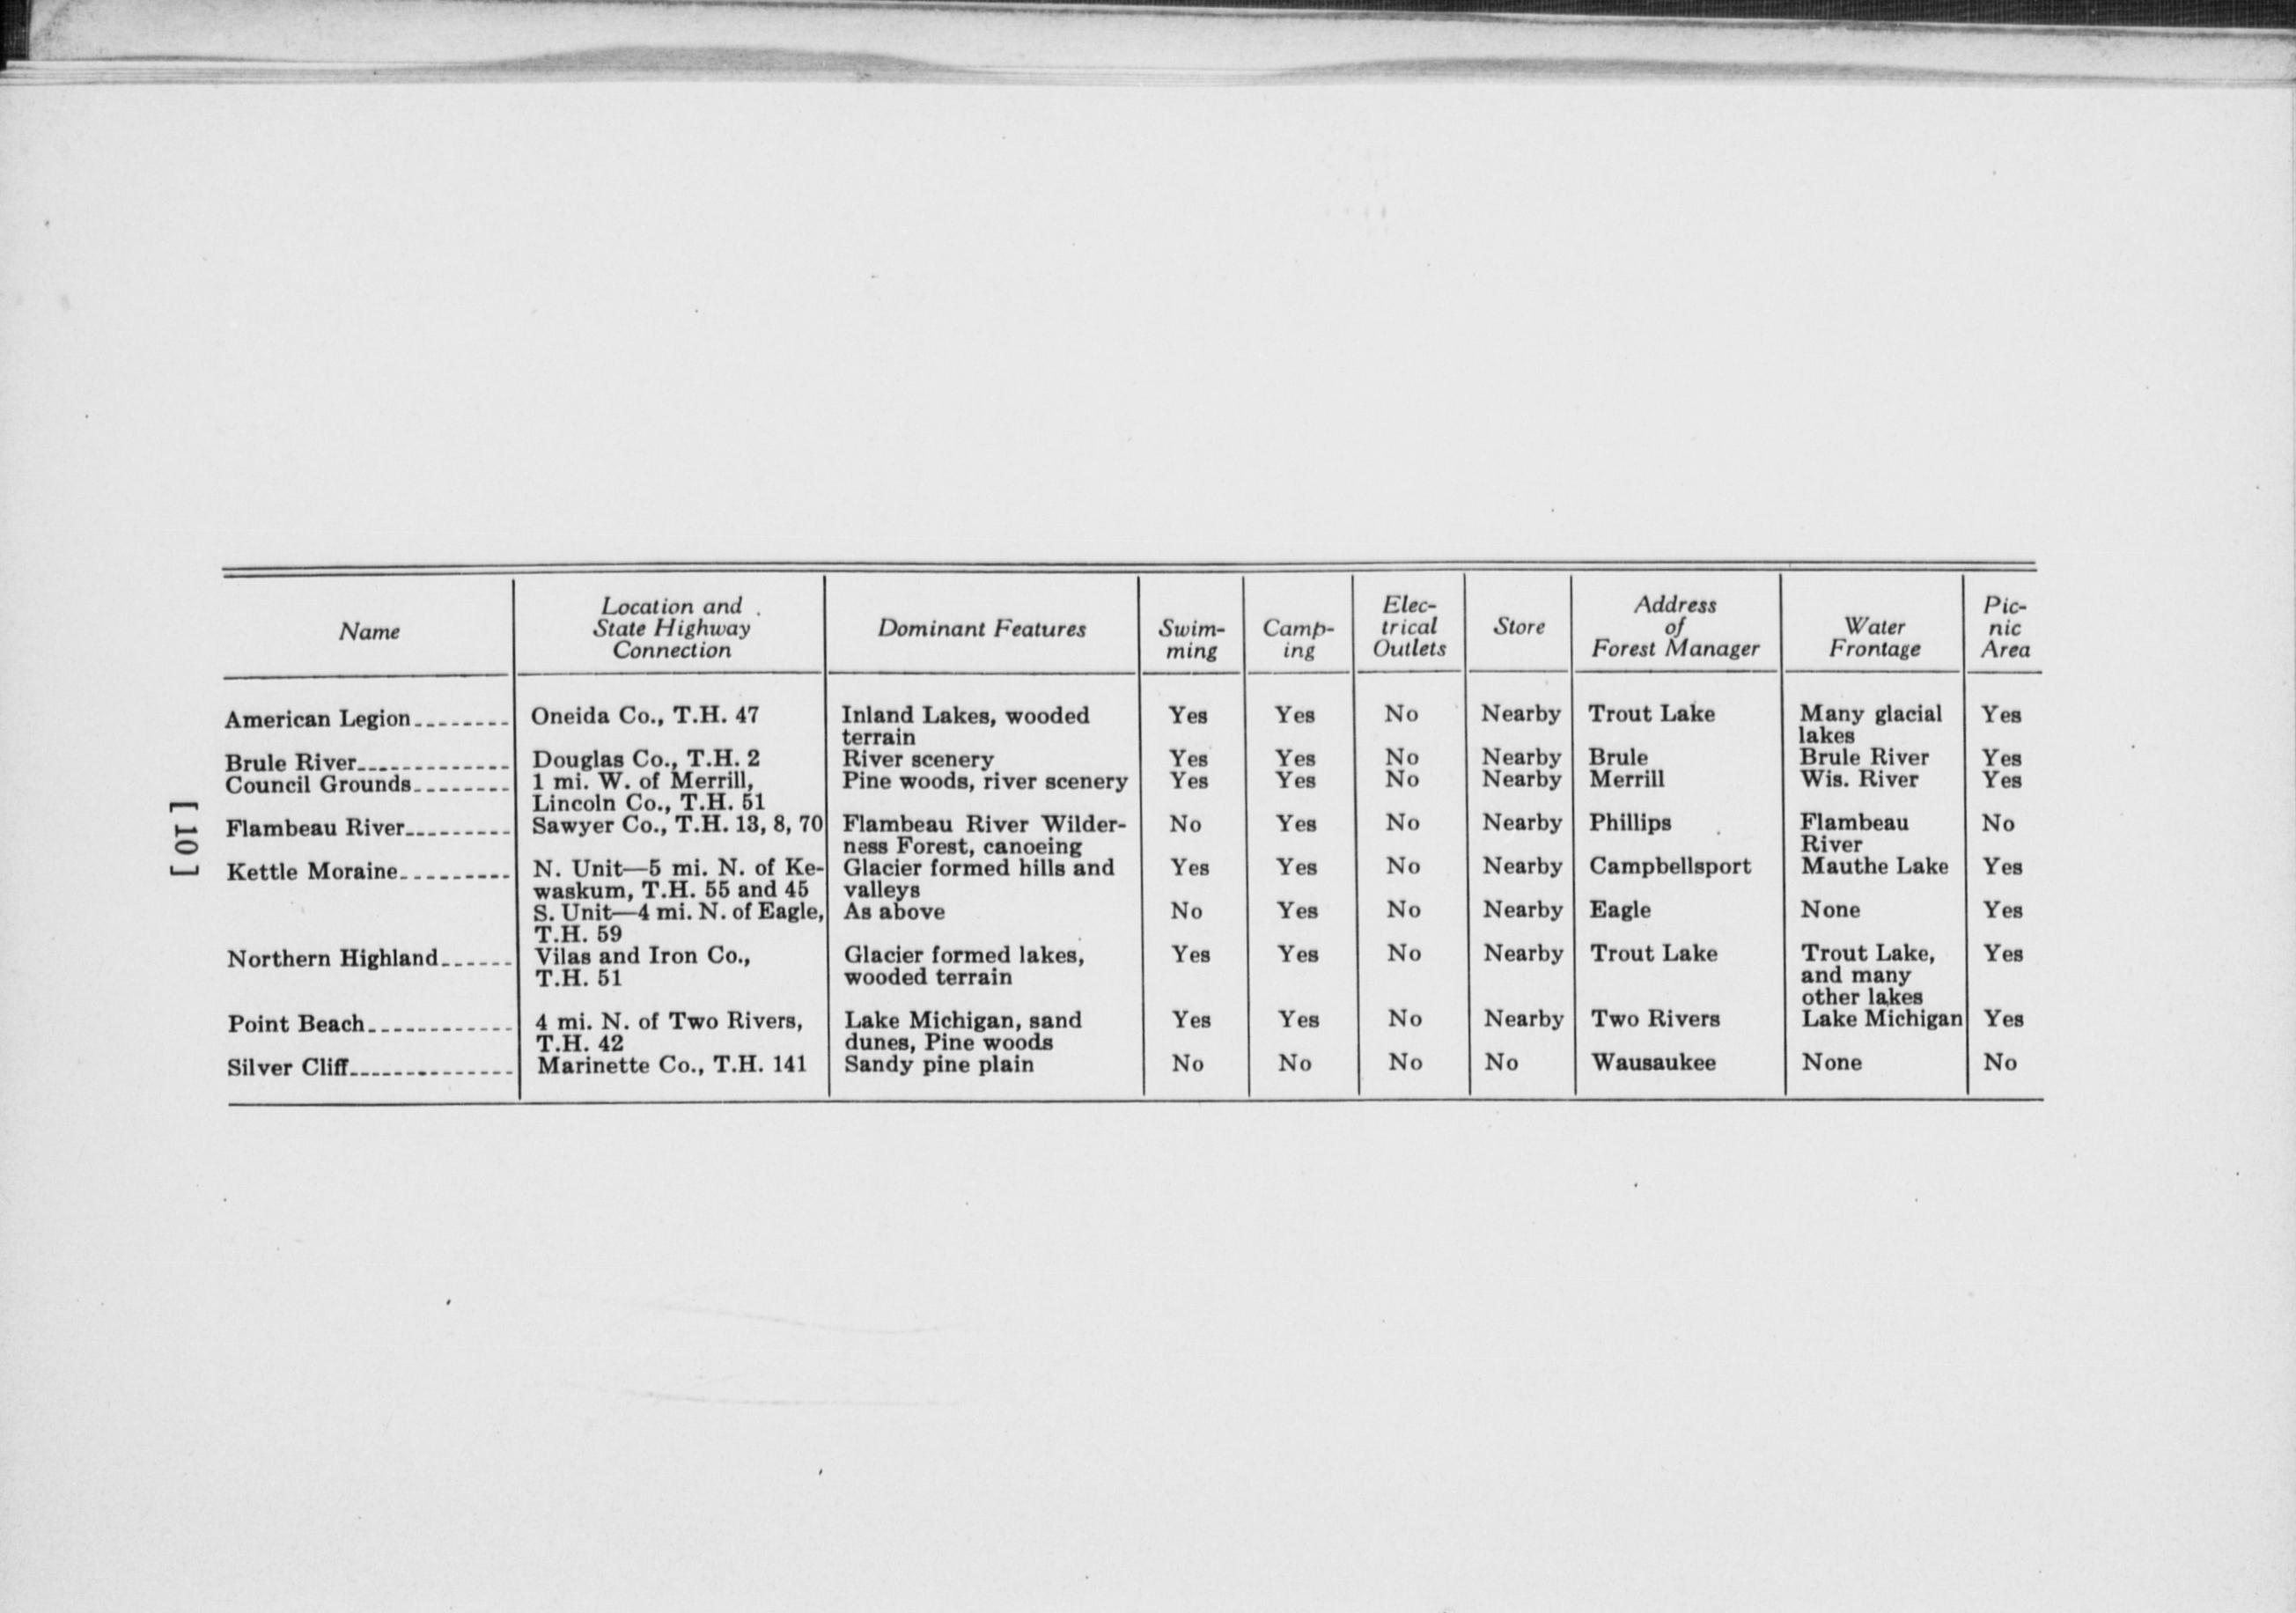 Name
Location and
State Highway
Connection
Dominant Features
Swim-
ming
Camp-
ing
Elec-
trical
Outlets
Store
Address
of
Forest Manager
Water
Frontage
Pic-
nic
Area
American Legion Oneida Co., T.H. 47 Inland Lakes, wooded Yes Yes No Nearby Trout Lake Many glacial Yes
terrain lakes
Brule River Douglas Co., T.H. 2 River scenery Yes Yes No Nearby Brule Brule River Yes
Council Grounds 1 mi. W. of Merrill, Pine woods, river scenery Yes Yes No Nearby Merrill Wis. River Yes
Lincoln Co., T.H. 51
Flambeau River Sawyer Co., T.H. 13, 8, 70 Flambeau River Wilder- No Yes No Nearby Phillips Flambeau No
ness Forest, canoeing River
Kettle Moraine N. Unit—5 mi. N. of Ke- Glacier formed hills and Yes Yes No Nearby Campbellsport Mauthe Lake Yes
waskum, T.H. 55 and 45 valleys
S. Unit—4 mi. N. of Eagle, As above No Yes No Nearby Eagle None Yes
T.H. 59
Northern Highland Vilas and Iron Co., Glacier formed lakes, Yes Yes No Nearby Trout Lake Trout Lake, Yes
T.H. 51 wooded terrain and many
other lakes
Point Beach 4 mi. N. of Two Rivers, Lake Michigan, sand Yes Yes No Nearby Two Rivers Lake Michigan Yes
T.H. 42 dunes, Pine woods
Silver Cliff Marinette Co., T.H. 141 Sandy pine plain No No No No Wausaukee None No
[ 10 ]